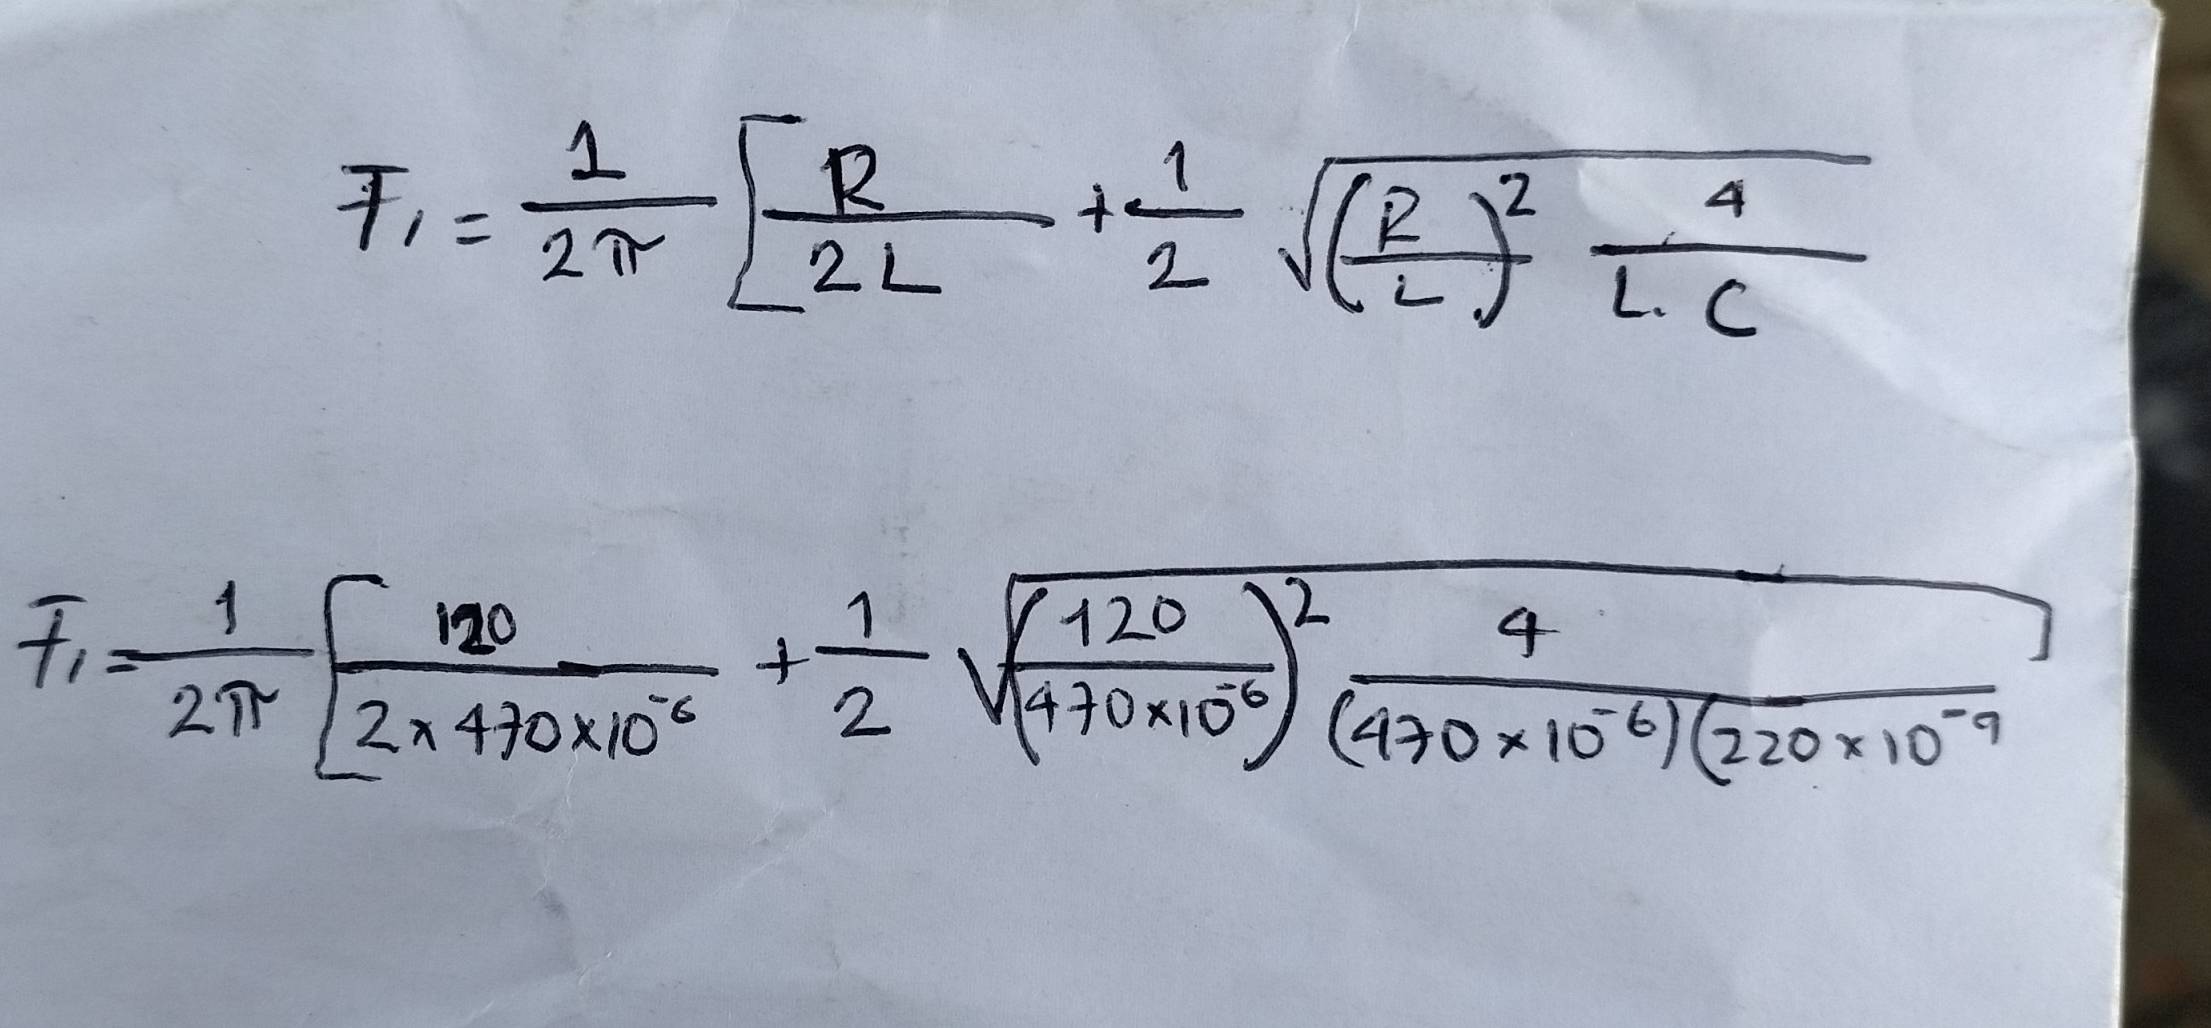 F₁ = 1/2π [R/2L + 1/2 √(R/L)² 4/L.C
F₁ = 1/2π [120/2×470×10⁻⁶ + 1/2 √(120/470×10⁻⁶)² 4/(470×10⁻⁶)(220×10⁻⁹]